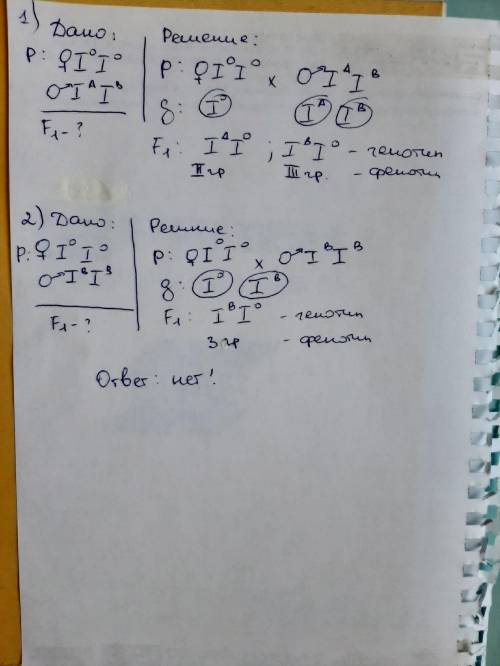 1) Дано:
P: ♀ IᴼIᴼ
♂ IᴬIᴮ
F₁ - ?
Решение:
P: ♀ IᴼIᴼ × ♂ IᴬIᴮ
g: Iᴼ Iᴬ Iᴮ
F₁: IᴬIᴼ ; IᴮIᴼ - генотип
II гр III гр. - фенотип
2) Дано:
P: ♀ IᴼIᴼ
♂ IᴮIᴮ
F₁ - ?
Решение:
P: ♀ IᴼIᴼ × ♂ IᴮIᴮ
g: Iᴼ Iᴮ
F₁: IᴮIᴼ - генотип
3 гр - фенотип
Ответ: нет!